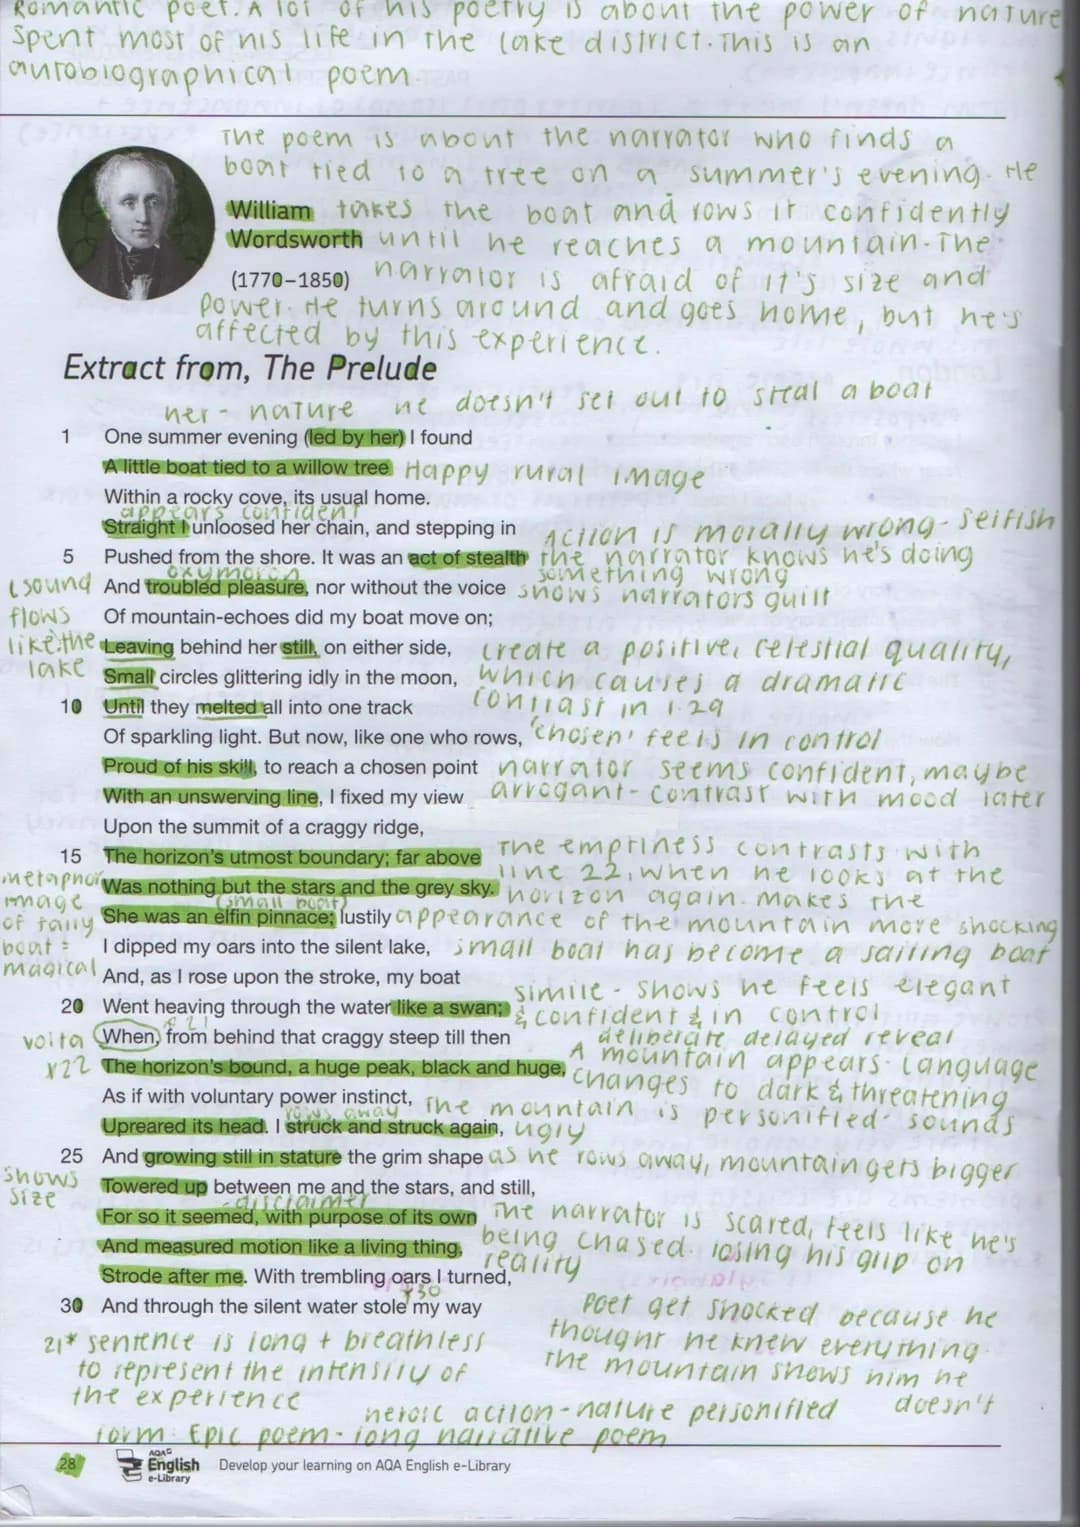 Romantic poet. A lot of his poetry is about the power of nature
Spent most of his life in the lake district. This is an
autobiographical poem
The poem is about the narrator who finds a
boat tied to a tree on a summer's evening. He
William takes the boat and rows it confidently
Wordsworth until he reaches a mountain. The
(1770–1850) narrator is afraid of it's size and
power. He turns around and goes home, but he's
affected by this experience.
Extract from, The Prelude
her - nature he doesn't set out to steal a boat
1 One summer evening (led by her) I found
A little boat tied to a willow tree Happy rural image
Within a rocky cove, its usual home.
appears confident
Straight I unloosed her chain, and stepping in Action is morally wrong - selfish
5 Pushed from the shore. It was an act of stealth the narrator knows he's doing
oxymoron something wrong
(sound And troubled pleasure, nor without the voice shows narrators guilt
flows Of mountain-echoes did my boat move on;
like the Leaving behind her still, on either side, create a positive, celestial quality,
lake Small circles glittering idly in the moon, which causes a dramatic
10 Until they melted all into one track contrast in l.29
Of sparkling light. But now, like one who rows, 'chosen' feels in control
Proud of his skill, to reach a chosen point narrator seems confident, maybe
With an unswerving line, I fixed my view arrogant - contrast with mood later
Upon the summit of a craggy ridge,
15 The horizon's utmost boundary; far above The emptiness contrasts with
metaphor Was nothing but the stars and the grey sky. line 22, when he looks at the
image (small boat) horizon again. Makes the
of fairy She was an elfin pinnace; lustily appearance of the mountain more shocking
boat = I dipped my oars into the silent lake, small boat has become a sailing boat
magical And, as I rose upon the stroke, my boat
20 Went heaving through the water like a swan; simile - shows he feels elegant
& confident & in control
volta When, from behind that craggy steep till then deliberate delayed reveal
*21
*22 The horizon's bound, a huge peak, black and huge, A mountain appears - language
As if with voluntary power instinct, changes to dark & threatening
rows away The mountain is personified - sounds
Upreared its head. I struck and struck again, ugly
25 And growing still in stature the grim shape as he rows away, mountain gets bigger
shows Towered up between me and the stars, and still,
size - disclaimer
For so it seemed, with purpose of its own The narrator is scared, feels like he's
And measured motion like a living thing, being chased. losing his grip on
Strode after me. With trembling oars I turned, reality
30
30 And through the silent water stole my way
21* sentence is long + breathless
to represent the intensity of
the experience
Poet get shocked because he
thought he knew everything.
The mountain shows him he
doesn't
heroic action - nature personified
form: Epic poem - long narrative poem
28 AQA English e-Library Develop your learning on AQA English e-Library